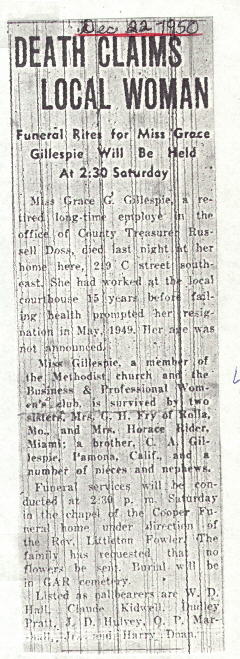 Dec 22 1950
DEATH CLAIMS
LOCAL WOMAN
Funeral Rites for Miss Grace
Gillespie Will Be Held
At 2:30 Saturday
Miss Grace G. Gillespie, a re-
tired long-time employe in the
office of County Treasurer Rus-
sell Doss, died last night at her
home here, C street south-
east. She had worked at the local
courthouse 15 years before fail-
ing health prompted her resig-
nation in May, 1949. Her age was
not announced.
Miss Gillespie, a member of
the Methodist church and the
Business & Professional Wom-
en's club, is survived by two
sisters, Mrs. G. H. Fry of Rolla,
Mo., and Mrs. Horace Rider,
Miami; a brother, C. A. Gil-
lespie, Pamona, Calif., and a
number of nieces and nephews.
Funeral services will be con-
ducted at 2:30 p. m. Saturday
in the chapel of the Cooper Fu-
neral home under direction of
the Rev. Littleton Fowler. The
family has requested that no
flowers be sent. Burial will be
in GAR cemetery.
Listed as pallbearers are W. D.
Hall, Claude Kidwell, Dudley
Pratt, J. D. Hulvey, O. P. Mar-
Jr., and Harry Doan.